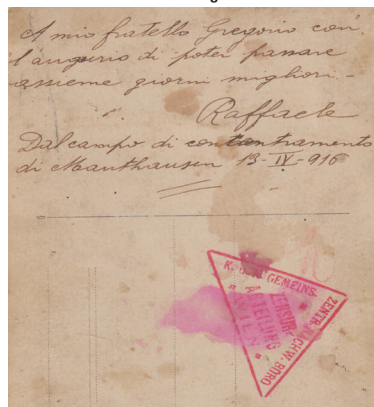 A mio fratello Gregorio con
l'augurio di poter passare
assieme giorni migliori.-
Raffaele
Dal campo di concentramento
di Mauthausen 13-IV-916
GEMEINS.
ZENTR. NACHW. BÜRO
ZENSUR
ABTEILUNG
WIEN